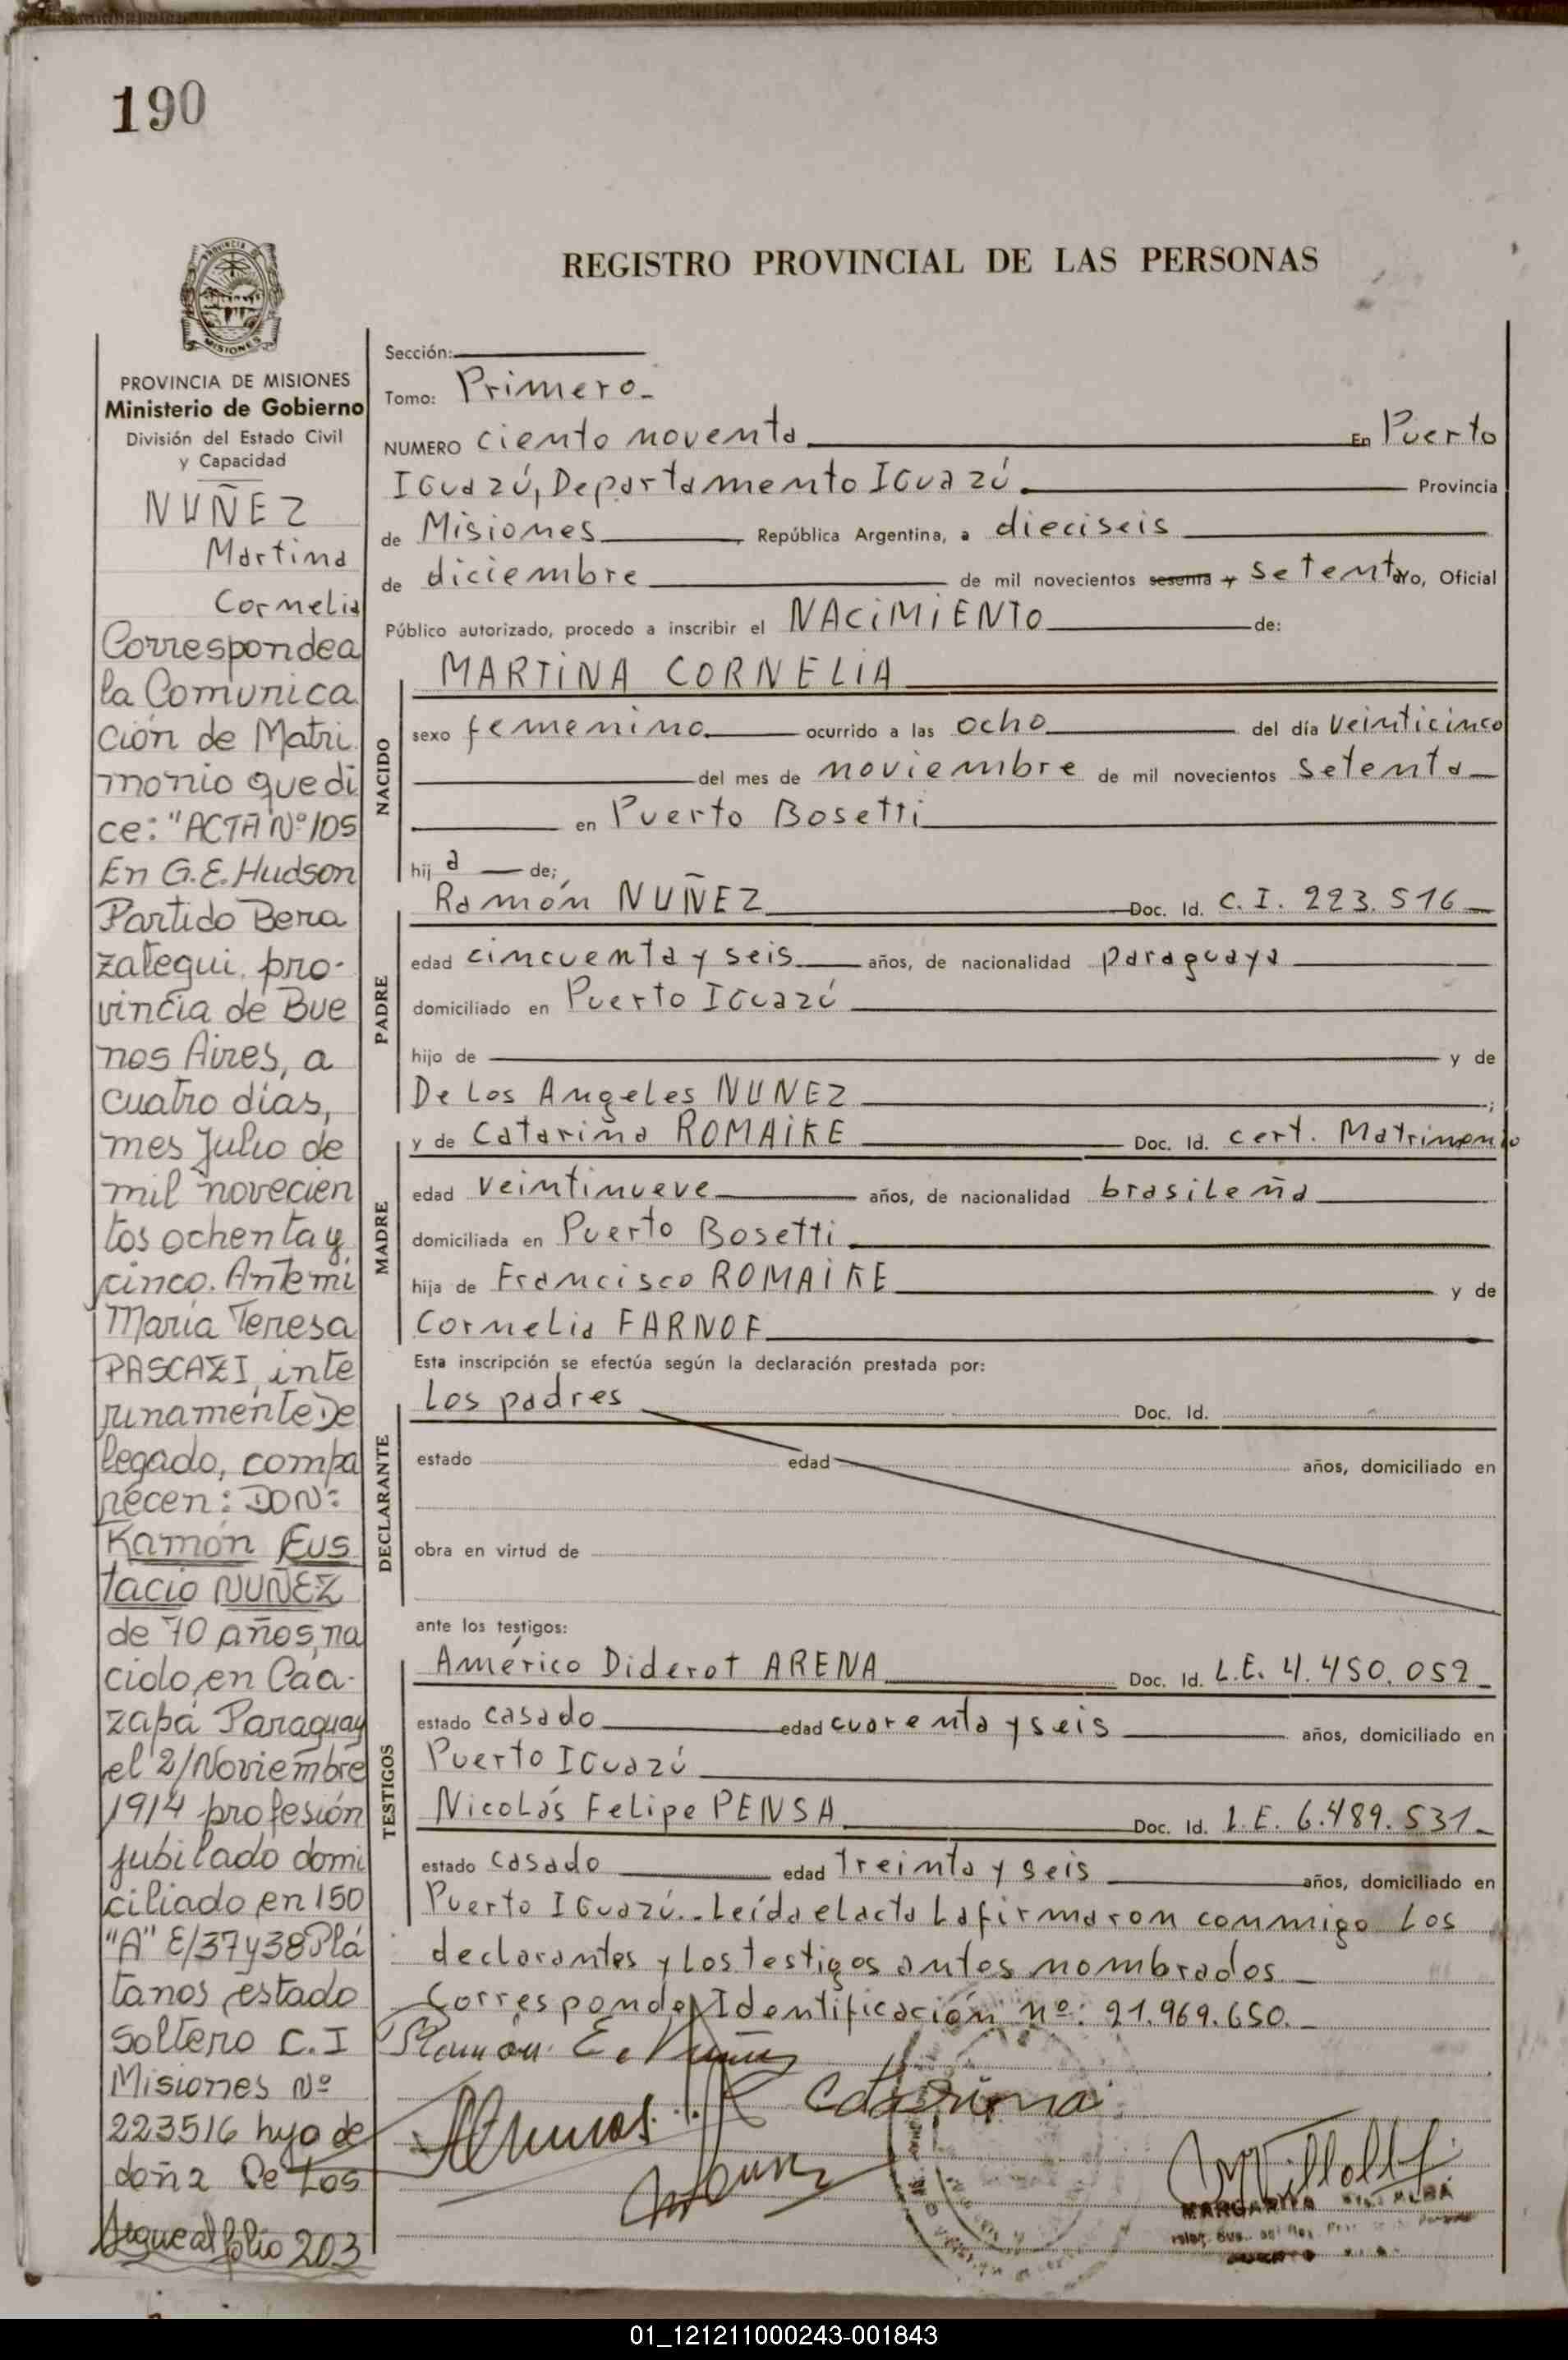 190
REGISTRO PROVINCIAL DE LAS PERSONAS
MISIONES
PROVINCIA DE MISIONES
Ministerio de Gobierno
División del Estado Civil
y Capacidad
NUÑEZ
Martina
Cornelia
Corresponde a
la Comunica
ción de Matri
monio que di
ce: "ACTA Nº 105
En G.E. Hudson
Partido Bera
zategui, pro-
vincia de Bue
nos Aires, a
cuatro días,
mes Julio de
mil novecien
tos ochenta y
cinco. Ante mi
María Teresa
PASCAZI, inte
rinamente De
legado, compa
recen: DON:
Ramón Eus
tacio NUÑEZ
de 70 años, na
cido en Caa-
zapá Paraguay
el 2/Noviembre
1914 profesión
jubilado domi
ciliado en 150
"A" E/37y38 Plá
tanos, estado
soltero C.I
Misiones Nº
223516 hijo de
doña De Los
Sigue al folio 203
Sección:
Tomo: Primero
NUMERO ciento noventa En Puerto
Iguazú, Departamento Iguazú. Provincia
de Misiones, República Argentina, a dieciseis
de diciembre de mil novecientos sesenta y setenta yo, Oficial
Público autorizado, procedo a inscribir el NACIMIENTO de:
MARTINA CORNELIA
NACIDO
sexo femenino ocurrido a las ocho del día veinticinco
del mes de noviembre de mil novecientos setenta
en Puerto Bosetti
hija de;
PADRE
Ramón NUÑEZ Doc. Id. C. I. 223.516
edad cincuenta y seis años, de nacionalidad paraguaya
domiciliado en Puerto Iguazú
hijo de y de
De Los Angeles NUNEZ ;
MADRE
y de Catarina ROMAIKE Doc. Id. cert. Matrimonio
edad veintinueve años, de nacionalidad brasileña
domiciliada en Puerto Bosetti
hija de Francisco ROMAIKE y de
Cornelia FARNOF
Esta inscripción se efectúa según la declaración prestada por:
DECLARANTE
Los padres Doc. Id.
estado edad años, domiciliado en
obra en virtud de
ante los testigos:
TESTIGOS
Américo Diderot ARENA Doc. Id. L.E. 4.450.052
estado casado edad cuarenta y seis años, domiciliado en
Puerto Iguazú
Nicolás Felipe PENSA Doc. Id. L.E. 6.489.531
estado casado edad treinta y seis años, domiciliado en
Puerto Iguazú.- Leída el acta la firmaron conmigo los
declarantes y los testigos antes nombrados
Corresponde Identificación nº: 21.969.650.
Ramón E. Nuñez
Catarina
MARGARITA
01_121211000243-001843